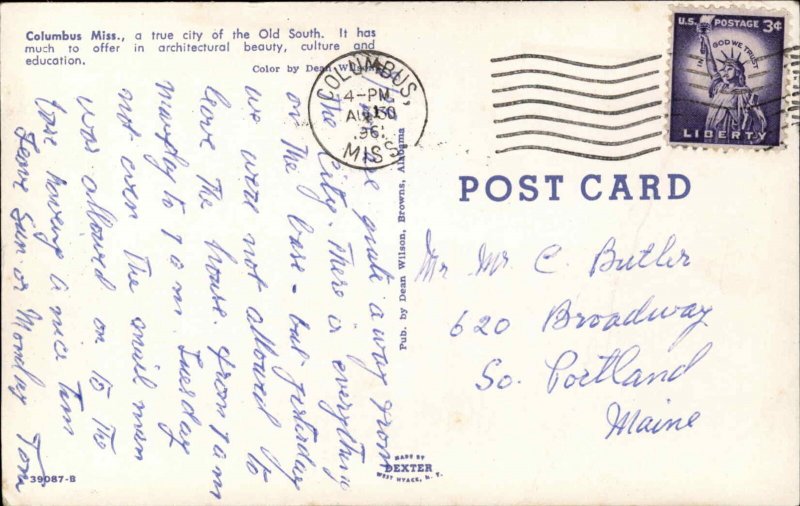 Columbus Miss., a true city of the Old South. It has
much to offer in architectural beauty, culture and
education.
Color by Dean Wilson
COLUMBUS,
4-PM
AUG 30
1961
MISS
U.S. POSTAGE 3¢
IN GOD WE TRUST
LIBERTY
POST CARD
are quite a way from
The City. There is everything
on The base - but yesterday
we were not allowed to
leave The house from 7 am
to 7 am. Tuesday
not even The mail man
was allowed on to The
base having a nice Time
Leave Sun or Monday Tom
Pub. by Dean Wilson, Browns, Alabama
Mr Mr. C. Butler
620 Broadway
So. Portland
Maine
MADE BY
DEXTER
WEST NYACK, N. Y.
39087-B